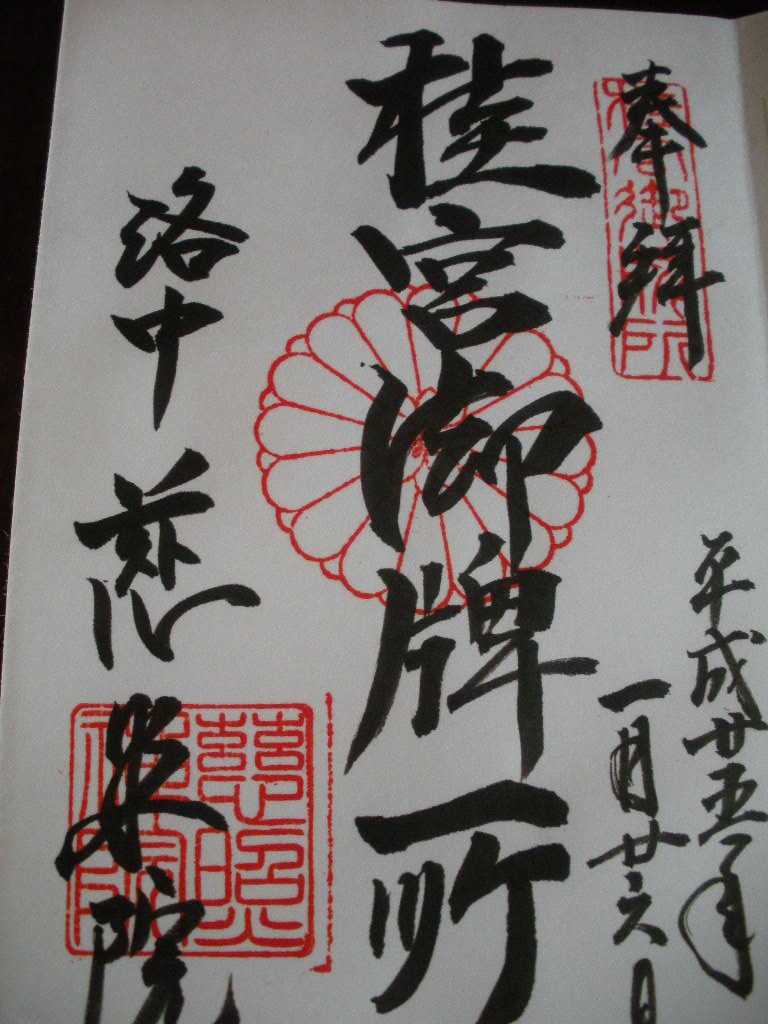 奉拝
平成廿五年
一月廿六日
桂宮御牌所
洛中 慈照院
慈照